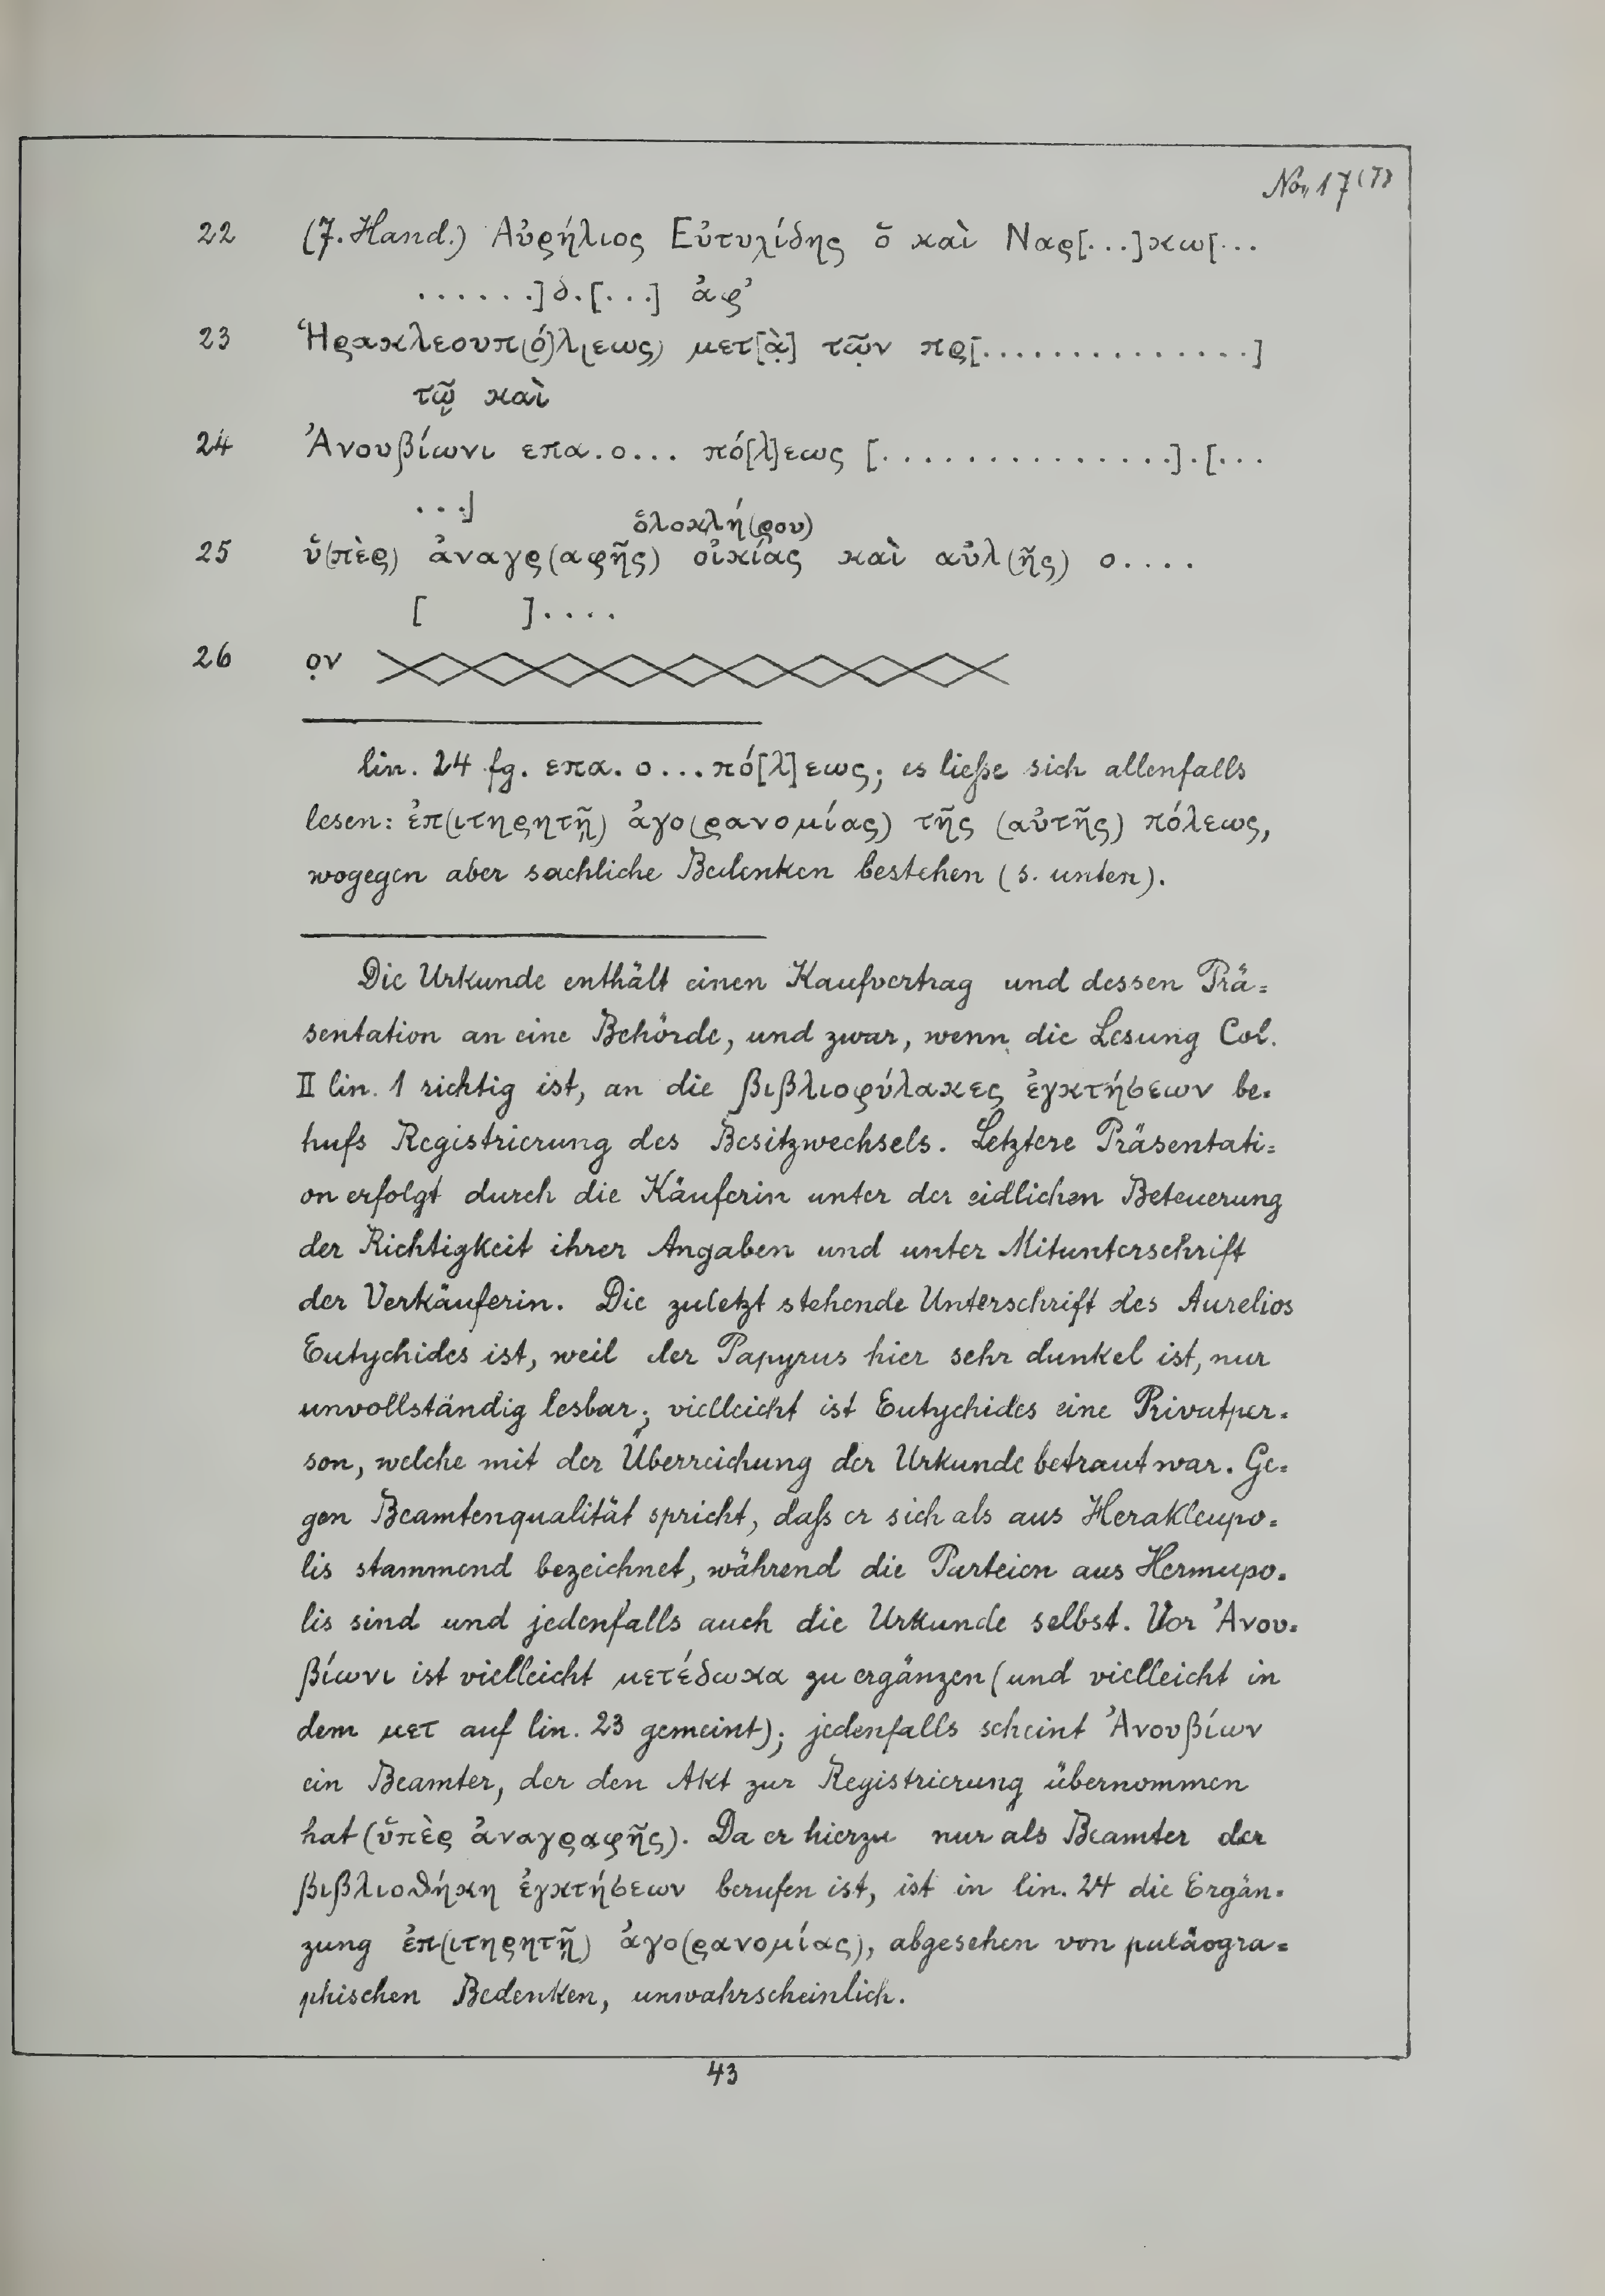 No. 17 (7)
22 (7. Hand.) Αὐρήλιος Εὐτυχίδης ὅ καὶ Ναρ[...]κω[...
......]δ.[...] ἀφ’
23 Ἡρακλεουπ(ό)λ(εως) μετ[ὰ] τῶν πρ[..............]
τῷ καὶ
24 Ἀνουβίωνι επα.ο... πό[λ]εως [..............].[...
...]
ὅλοκλή(ρου)
25 ὕ(πὲρ) ἀναγρ(αφῆς) οἰκίας καὶ αὐλ(ῆς) ο....
[ ]....
26 ο̣ν
lin. 24 fg. επα. ο...πό[λ]εως; es ließe sich allenfalls
lesen: ἐπ(ιτηρητῇ) ἀγο(ρανομίας) τῆς (αὐτῆς) πόλεως,
wogegen aber sachliche Bedenken bestehen (s. unten).
Die Urkunde enthält einen Kaufvertrag und dessen Prä=
sentation an eine Behörde, und zwar, wenn die Lesung Col.
II lin. 1 richtig ist, an die βιβλιοφύλακες ἐγκτήσεων be=
hufs Registrierung des Besitzwechsels. Letztere Präsentati=
on erfolgt durch die Käuferin unter der eidlichen Beteuerung
der Richtigkeit ihrer Angaben und unter Mitunterschrift
der Verkäuferin. Die zuletzt stehende Unterschrift des Aurelios
Eutychides ist, weil der Papyrus hier sehr dunkel ist, nur
unvollständig lesbar; vielleicht ist Eutychides eine Privatper=
son, welche mit der Überreichung der Urkunde betraut war. Ge=
gen Beamtenqualität spricht, daß er sich als aus Herakleupo=
lis stammend bezeichnet, während die Parteien aus Hermupo=
lis sind und jedenfalls auch die Urkunde selbst. Vor Ἀνου=
βίωνι ist vielleicht μετέδωκα zu ergänzen (und vielleicht in
dem μετ auf lin. 23 gemeint); jedenfalls scheint Ἀνουβίων
ein Beamter, der den Akt zur Registrierung übernommen
hat (ὕπὲρ ἀναγραφῆς). Da er hierzu nur als Beamter der
βιβλιοθήκη ἐγκτήσεων berufen ist, ist in lin. 24 die Ergän=
zung ἐπ(ιτηρητῇ) ἀγο(ρανομίας), abgesehen von paläogra=
phischen Bedenken, unwahrscheinlich.
43